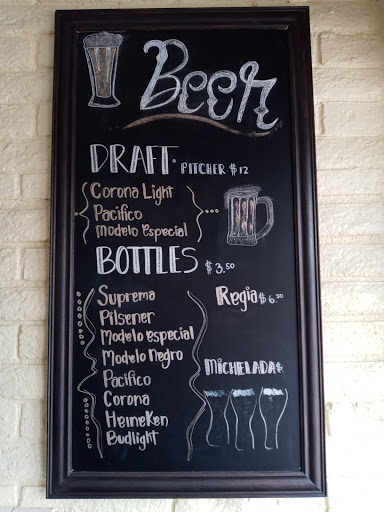 Beer
DRAFT. PITCHER $12
Corona Light
Pacifico
Modelo Especial
BOTTLES $3.50
Suprema
Pilsener
Modelo especial
Modelo negro
Pacifico
Corona
Heineken
Budlight
Regia $6.50
MICHELADA$